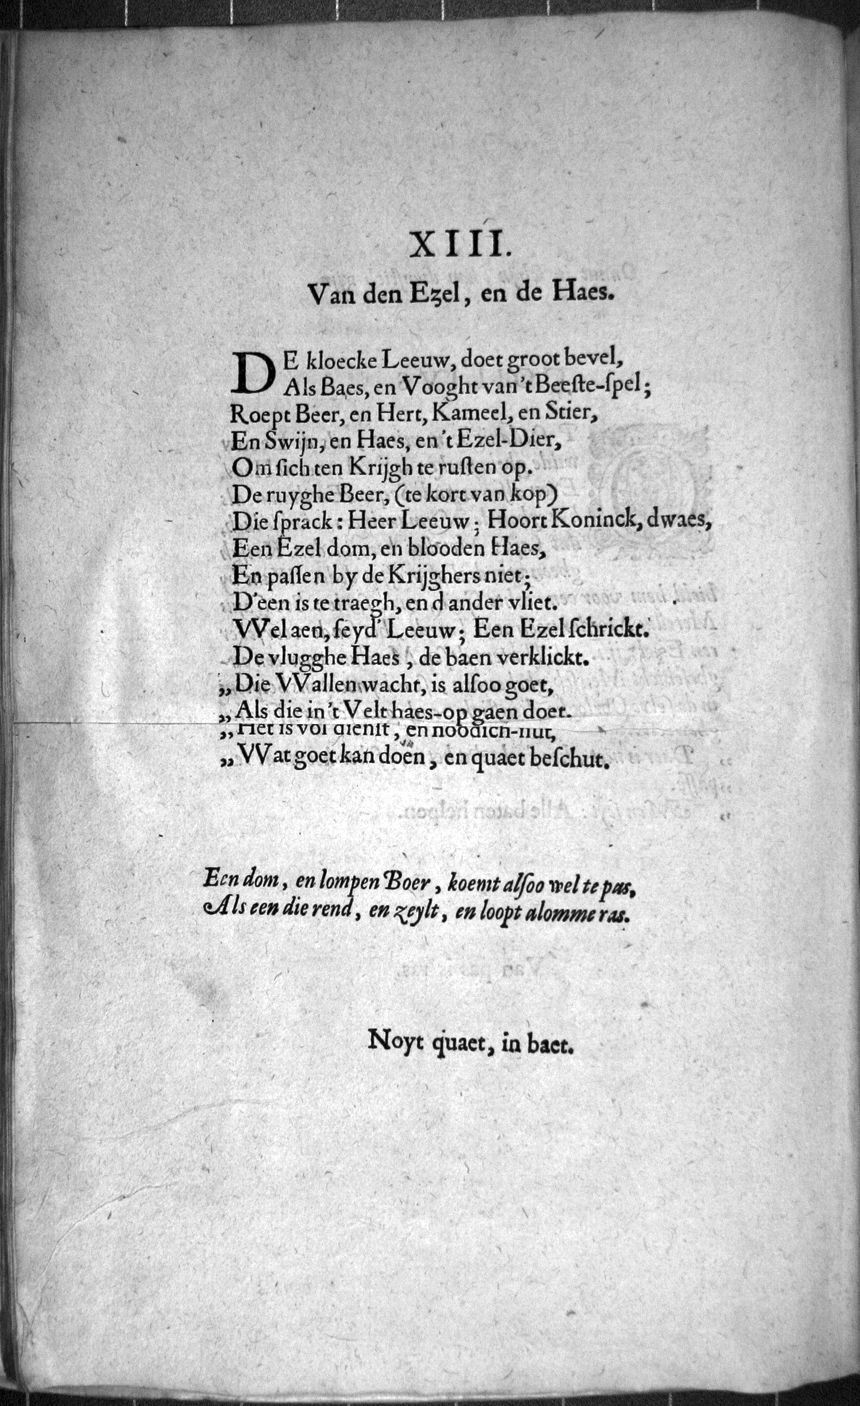 XIII.
Van den Ezel, en de Haes.
DE kloecke Leeuw, doet groot bevel,
Als Baes, en Vooght van 't Beeſte-ſpel;
Roept Beer, en Hert, Kameel, en Stier,
En Swijn, en Haes, en 't Ezel-Dier,
Om ſich ten Krijgh te ruſten op.
De ruyghe Beer, (te kort van kop)
Die ſprack: Heer Leeuw; Hoort Koninck, dwaes,
Een Ezel dom, en blooden Haes,
En paſſen by de Krijghers niet;
D'een is te traegh, en d ander vliet.
VVel aen, ſeyd' Leeuw; Een Ezel ſchrickt.
De vlugghe Haes, de baen verklickt.
„Die VVallen wacht, is alſoo goet,
„Als die in 't Velt haes-op gaen doet.
„Het is vol dienſt, en noodich-nut,
„VVat goet kan doen, en quaet beſchut.
Een dom, en lompen Boer, koemt alſoo wel te pas,
Als een die rend, en zeylt, en loopt alomme ras.
Noyt quaet, in baet.